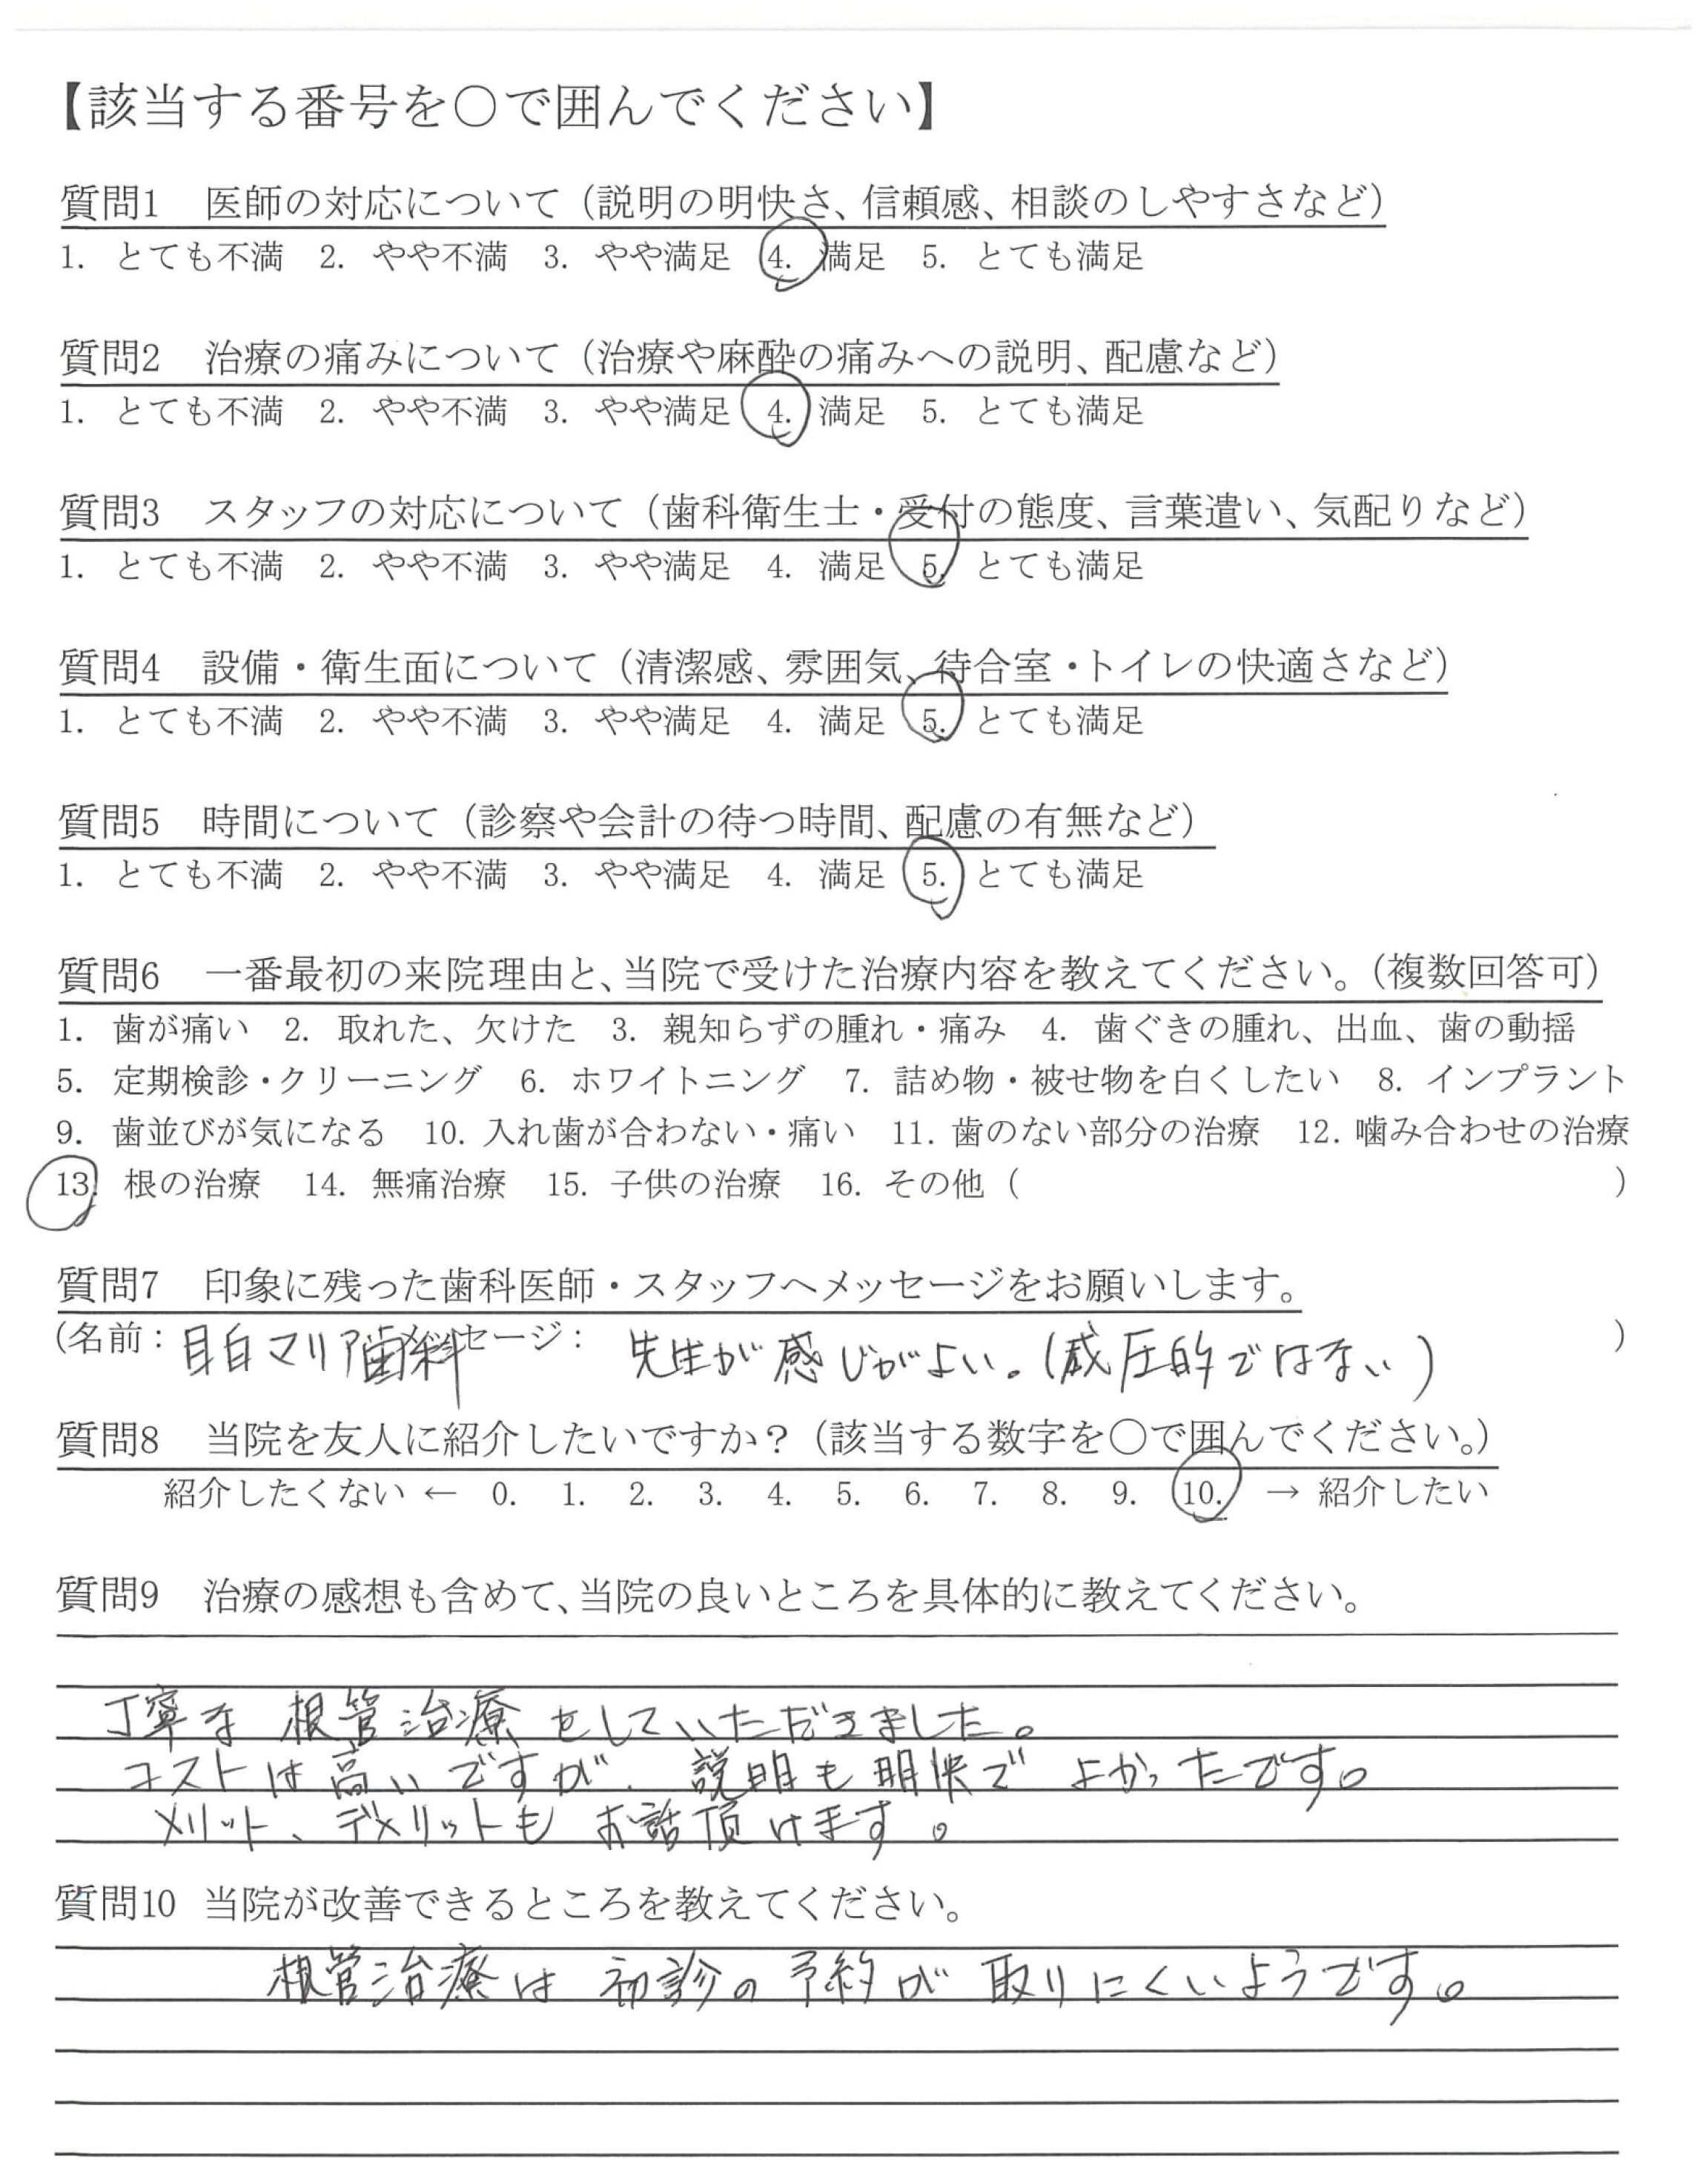 【該当する番号を〇で囲んでください】
質問1　医師の対応について（説明の明快さ、信頼感、相談のしやすさなど）
1. とても不満　2. やや不満　3. やや満足　4. 満足　5. とても満足
質問2　治療の痛みについて（治療や麻酔の痛みへの説明、配慮など）
1. とても不満　2. やや不満　3. やや満足　4. 満足　5. とても満足
質問3　スタッフの対応について（歯科衛生士・受付の態度、言葉遣い、気配りなど）
1. とても不満　2. やや不満　3. やや満足　4. 満足　5. とても満足
質問4　設備・衛生面について（清潔感、雰囲気、待合室・トイレの快適さなど）
1. とても不満　2. やや不満　3. やや満足　4. 満足　5. とても満足
質問5　時間について（診察や会計の待つ時間、配慮の有無など）
1. とても不満　2. やや不満　3. やや満足　4. 満足　5. とても満足
質問6　一番最初の来院理由と、当院で受けた治療内容を教えてください。（複数回答可）
1. 歯が痛い　2. 取れた、欠けた　3. 親知らずの腫れ・痛み　4. 歯ぐきの腫れ、出血、歯の動揺
5. 定期検診・クリーニング　6. ホワイトニング　7. 詰め物・被せ物を白くしたい　8. インプラント
9. 歯並びが気になる　10. 入れ歯が合わない・痛い　11. 歯のない部分の治療　12. 噛み合わせの治療
13. 根の治療　14. 無痛治療　15. 子供の治療　16. その他（　）
質問7　印象に残った歯科医師・スタッフへメッセージをお願いします。
（名前：目白マリア歯科 メッセージ： 先生が感じがよい。（威圧的ではない）　）
質問8　当院を友人に紹介したいですか？（該当する数字を〇で囲んでください。）
紹介したくない ← 0.　1.　2.　3.　4.　5.　6.　7.　8.　9.　10.　→ 紹介したい
質問9　治療の感想も含めて、当院の良いところを具体的に教えてください。
丁寧な 根管治療をしていただきました。
コストは高いですが、説明も明快で よかったです。
メリット、デメリットも お話頂けます。
質問10　当院が改善できるところを教えてください。
根管治療は 初診の予約が 取りにくいようです。